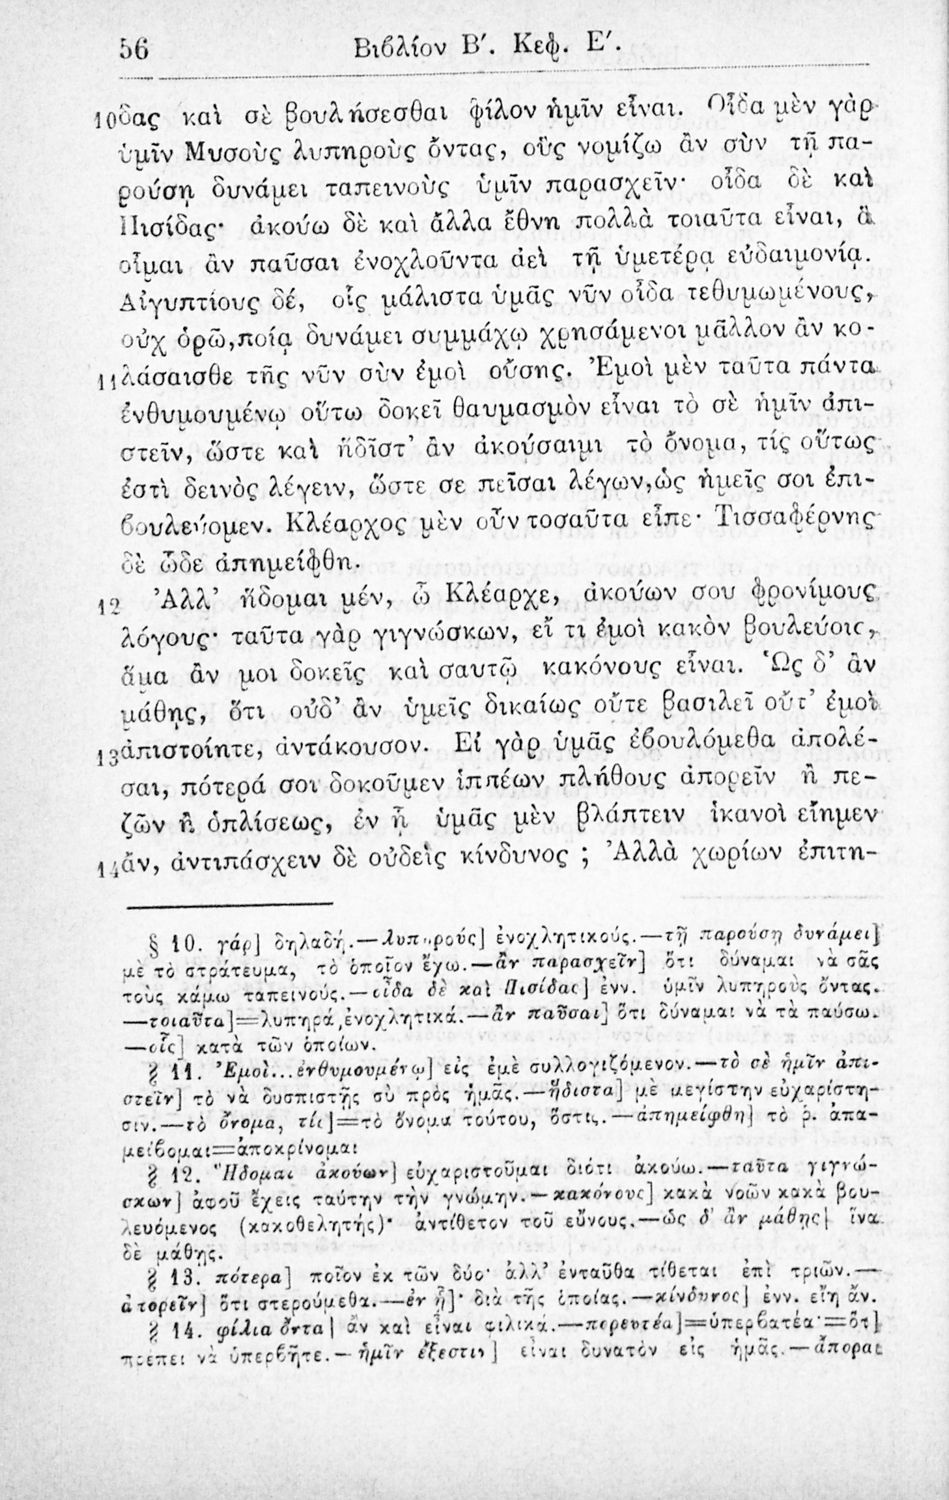 56 Βιβλίον Β΄. Κεφ. Ε΄.
10 δας καὶ σὲ βουλήσεσθαι φίλον ἡμῖν εἶναι. Οἶδα μὲν γὰρ
ὑμῖν Μυσοὺς λυπηροὺς ὄντας, οὓς νομίζω ἂν σὺν τῇ πα-
ρούσῃ δυνάμει ταπεινοὺς ὑμῖν παρασχεῖν· οἶδα δὲ καὶ
Πισίδας· ἀκούω δὲ καὶ ἄλλα ἔθνη πολλὰ τοιαῦτα εἶναι, ἃ
οἶμαι ἂν παῦσαι ἐνοχλοῦντα ἀεὶ τῇ ὑμετέρᾳ εὐδαιμονίᾳ.
Αἰγυπτίους δέ, οἷς μάλιστα ὑμᾶς νῦν οἶδα τεθυμωμένους,
οὐχ ὁρῶ, ποίᾳ δυνάμει συμμάχῳ χρησάμενοι μᾶλλον ἂν κο-
11 λάσαισθε τῆς νῦν σὺν ἐμοὶ οὔσης. Ἐμοὶ μὲν ταῦτα πάντα
ἐνθυμουμένῳ οὕτω δοκεῖ θαυμασμὸν εἶναι τὸ σὲ ἡμῖν ἀπι-
στεῖν, ὥστε καὶ ἥδιστ’ ἂν ἀκούσαιμι τὸ ὄνομα, τίς οὕτως
ἐστὶ δεινὸς λέγειν, ὥστε σε πεῖσαι λέγων, ὡς ἡμεῖς σοι ἐπι-
βουλεύομεν. Κλέαρχος μὲν οὖν τοσαῦτα εἶπε· Τισσαφέρνης
δὲ ὧδε ἀπημείφθη.
12 Ἀλλ’ ἥδομαι μέν, ὦ Κλέαρχε, ἀκούων σου φρονίμους
λόγους· ταῦτα γὰρ γιγνώσκων, εἴ τι ἐμοὶ κακὸν βουλεύοις,
ἅμα ἄν μοι δοκεῖς καὶ σαυτῷ κακόνους εἶναι. Ὡς δ’ ἂν
μάθῃς, ὅτι οὐδ’ ἂν ὑμεῖς δικαίως οὔτε βασιλεῖ οὔτ’ ἐμοὶ
13 ἀπιστοίητε, ἀντάκουσον. Εἰ γὰρ ὑμᾶς ἐβουλόμεθα ἀπολέ-
σαι, πότερά σοι δοκοῦμεν ἱππέων πλήθους ἀπορεῖν ἢ πε-
ζῶν ἢ ὁπλίσεως, ἐν ᾗ ὑμᾶς μὲν βλάπτειν ἱκανοὶ εἴημεν
14 ἄν, ἀντιπάσχειν δὲ οὐδεὶς κίνδυνος ; Ἀλλὰ χωρίων ἐπιτη-
§ 10. γάρ] δηλαδή.—λυπηρούς] ἐνοχλητικούς.—τῇ παρούσῃ δυνάμει]
μὲ τὸ στράτευμα, τὸ ὁποῖον ἔχω.—ἂν παρασχεῖν] ὅτι δύναμαι νὰ σᾶς
τοὺς κάμω ταπεινούς.—οἶδα δὲ καὶ Πισίδας] ἐνν. ὑμῖν λυπηροὺς ὄντας.
—τοιαῦτα]=λυπηρά, ἐνοχλητικά.—ἂν παῦσαι] ὅτι δύναμαι νὰ τὰ παύσω.
—οἷς] κατὰ τῶν ὁποίων.
§ 11. Ἐμοὶ...ἐνθυμουμένῳ] εἰς ἐμὲ συλλογιζόμενον.—τὸ σὲ ἡμῖν ἀπι-
στεῖν] τὸ νὰ δυσπιστῇς σὺ πρὸς ἡμᾶς.—ἥδιστα] μὲ μεγίστην εὐχαρίστη-
σιν.—τὸ ὄνομα, τίς]=τὸ ὄνομα τούτου, ὅστις.—ἀπημείφθη] τὸ ῥ. ἀπα-
μείβομαι=ἀποκρίνομαι
§ 12. Ἥδομαι ἀκούων] εὐχαριστοῦμαι διότι ἀκούω.—ταῦτα γιγνώ-
σκων] ἀφοῦ ἔχεις ταύτην τὴν γνώμην.—κακόνους] κακὰ νοῶν κακὰ βου-
λευόμενος (κακοθελητής)· ἀντίθετον τοῦ εὔνους.—ὡς δ’ ἂν μάθῃς] ἵνα
δὲ μάθῃς.
§ 13. πότερα] ποῖον ἐκ τῶν δύο· ἀλλ’ ἐνταῦθα τίθεται ἐπὶ τριῶν.—
ἀπορεῖν] ὅτι στερούμεθα.—ἐν ᾗ]· διὰ τῆς ὁποίας.—κίνδυνος] ἐνν. εἴη ἄν.
§ 14. φίλια ὄντα] ἂν καὶ εἶναι φιλικά.—πορευτέα]=ὑπερβατέα·=ὅτι
πρέπει νὰ ὑπερβῆτε.—ἡμῖν ἔξεστιν] εἶναι δυνατὸν εἰς ἡμᾶς.—ἄποροι